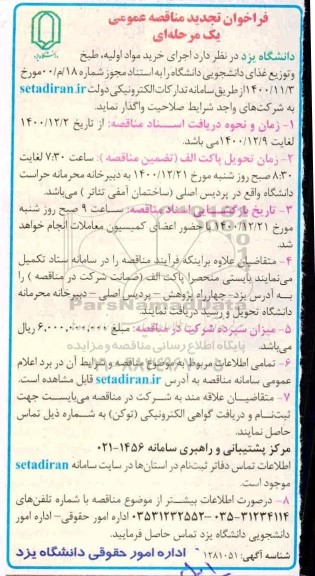 فراخوان تجدید مناقصه عمومی
یک مرحله‌ای
دانشگاه یزد در نظر دارد اجرای خرید مواد اولیه، طبخ
وتوزیع غذای دانشجویی دانشگاه را به استناد مجوز شماره ۱۸/م/۰۰مورخ
۱۴۰۰/۱۱/۳ از طریق سامانه تدارکات الکترونیکی دولت setadiran.ir
به شرکت‌های واجد شرایط صلاحیت واگذار نماید.
۱- زمان و نحوه دریافت اسناد مناقصه: از تاریخ ۱۴۰۰/۱۲/۲
لغایت ۱۴۰۰/۱۲/۹می باشد.
۲- زمان تحویل پاکت الف (تضمین مناقصه ): ساعت ۷:۳۰ لغایت
۸:۳۰ صبح روز شنبه مورخ ۱۴۰۰/۱۲/۲۱ به دبیرخانه محرمانه حراست
دانشگاه واقع در پردیس اصلی (ساختمان آمفی تئاتر ) می‌باشد.
۳- تاریخ بازگشایی اسناد مناقصه: ساعت ۹ صبح روز شنبه
مورخ ۱۴۰۰/۱۲/۲۱ با حضور اعضای کمیسیون معاملات انجام خواهد
شد.
۴- متقاضیان علاوه براینکه فرآیند مناقصه را در سامانه ستاد تکمیل
می‌نمایند بایستی منحصرا پاکت الف (ضمانت شرکت در مناقصه ) را
به آدرس یزد- چهارراه پژوهش – پردیس اصلی – دبیرخانه محرمانه
دانشگاه تحویل و رسید دریافت نمایند.
۵- میزان سپرده شرکت در مناقصه: مبلغ ۶.۰۰۰.۰۰۰.۰۰۰ ریال
می‌باشد.
۶- تمامی اطلاعات مربوط به موضوع مناقصه و شرایط آن در برد اعلام
عمومی سامانه مناقصه به آدرس setadiran.ir قابل مشاهده است.
۷- متقاضیان علاقه مند به شرکت در مناقصه می‌بایست جهت
ثبت‌نام و دریافت گواهی الکترونیکی (توکن) به شماره ذیل تماس
حاصل نمایند.
مرکز پشتیبانی و راهبری سامانه ۱۴۵۶-۰۲۱
اطلاعات تماس دفاتر ثبت‌نام در استان‌ها در سایت سامانه setadiran
موجود است.
۸- درصورت اطلاعات بیشتر از موضوع مناقصه با شماره تلفن‌های
۰۳۵-۳۱۲۳۴۱۱۴ اداره امور حقوقی– ۰۳۵۳۱۲۳۲۵۵۲ اداره امور
دانشجویی دانشگاه یزد تماس حاصل فرمایید.
شناسه آگهی: ۱۲۸۱۰۵۱ اداره امور حقوقی دانشگاه یزد